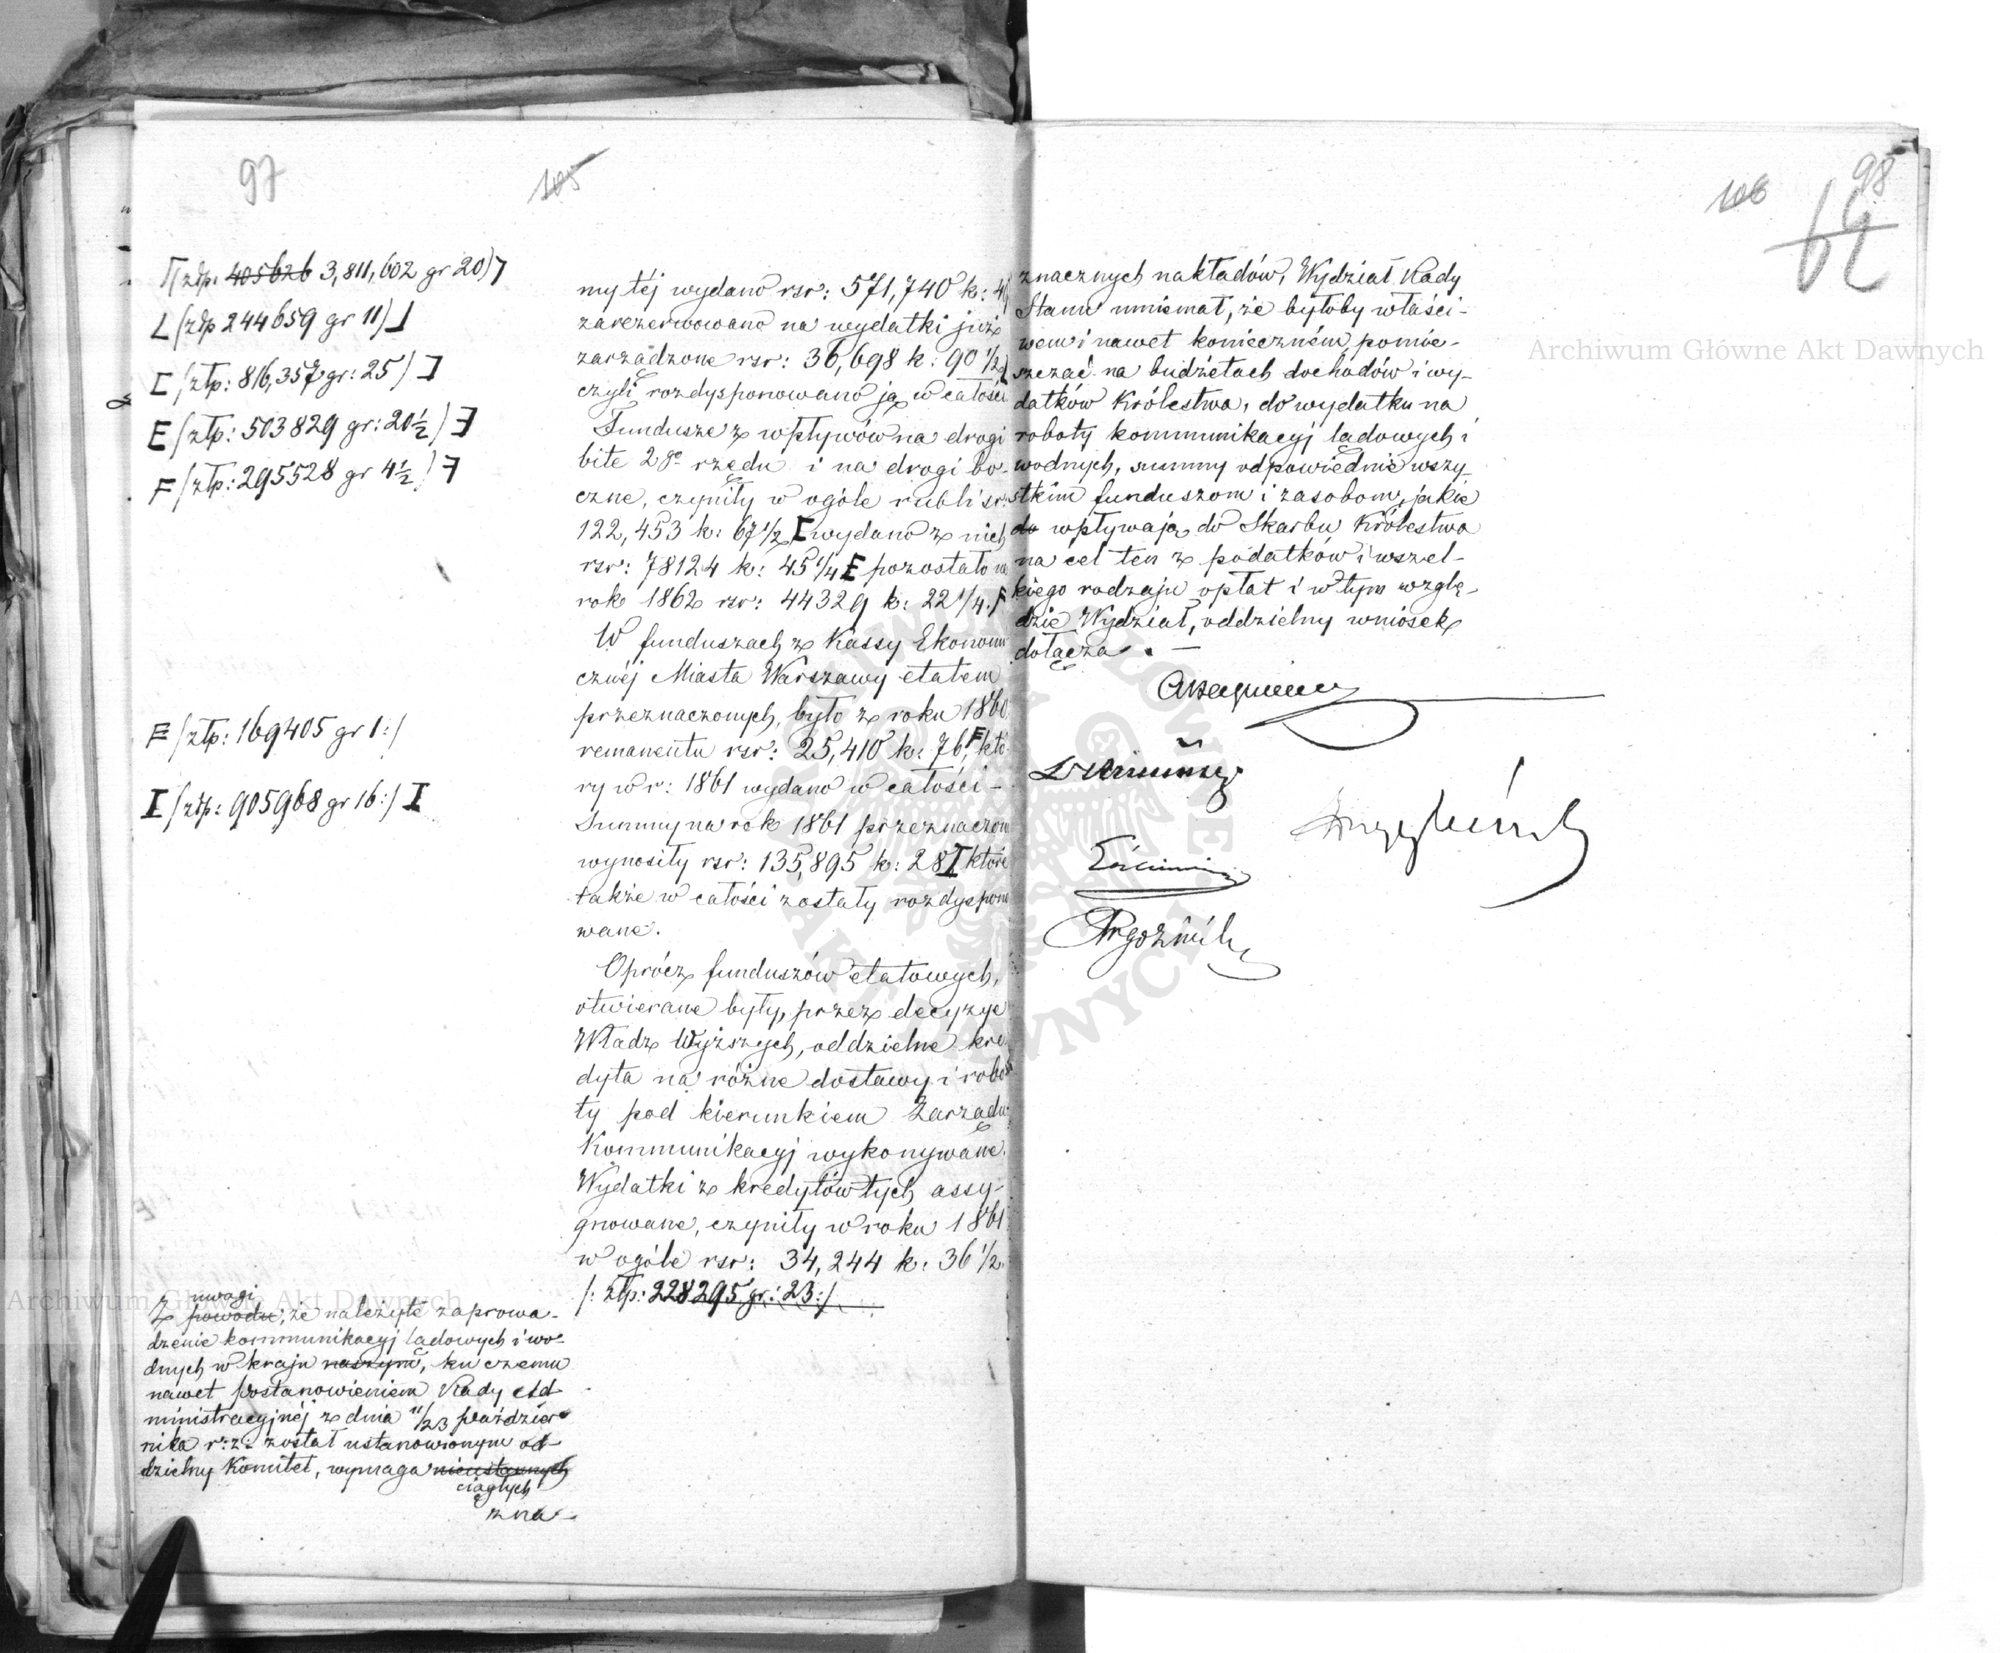 97
105
⌈(złp. 405626 3,811,602 gr 20)⌉
L (złp 244659 gr 11) ⅃
[ (złp: 816,357 gr: 25) ]
E (złp: 503829 gr: 20½) Ǝ
F (złp: 295528 gr 4½)
F (złp: 169405 gr 1:)
I (złp: 905968 gr 16:) I
uwagi
Z powodu, że należyte zaprowa-
dzenie kommunikacyj lądowych i wo-
dnych w kraju naszym, ku czemu
nawet postanowieniem Rady Ad-
ministracyjnéj z dnia 11/23 paździer-
nika r: z: został ustanowionym od-
dzielny Komitet, wymaga nieustannych
ciągłych
zna-
my téj wydano rsr: 571,740 k:
zarezerwowano na wydatki już
zarządzone rsr: 36,698 k: 90½
czyli rozdysponowano ją w całości
Fundusze z wpływów na drogi
bite 2go rzędu i na drogi bo-
czne, czyniły w ogóle rubli sr:
122,453 k: 67½ [ wydano z nich
rsr: 78124 k: 45¼ E pozostało na
rok 1862 rsr: 44329 k: 22¼. F
W funduszach z Kassy Ekonomi
cznéj Miasta Warszawy etatem
przeznaczonych, było z roku 1860
remanentu rsr: 25,410 k: 76, F któ-
ry w r: 1861 wydano w całości -
Summy na rok 1861 przeznaczone
wynosiły rsr: 135,895 k: 28 I które
także w całości zostały rozdyspono
wane.
Oprócz funduszów etatowych,
otwierane były, przez decyzye
Władz Wyższych, oddzielne kre
dyta na różne dostawy i robo
ty pod kierunkiem Zarządu
Kommunikacyj wykonywane.
Wydatki z kredytów tych assy-
gnowane, czyniły w roku 1861
w ogóle rsr: 34,244 k: 36½.
/: złp: 228295 gr: 23:/
98
106
64
znacznych nakładów, Wydział Rady
Stanu mniemał, że byłoby właści-
wem i nawet koniecznem, pomie-
szczać na budżetach dochodów i wy-
datków Królestwa, do wydatku na
roboty kommunikacyj lądowych i
wodnych, summy odpowiednie wszy-
stkim funduszom i zasobom, jakie
do wpływają do Skarbu Królestwa
na cel ten z podatków i wszel-
kiego rodzaju opłat i w tym wzglę-
dzie Wydział, oddzielny wniosek
dołącza. -
Archiwum Główne Akt Dawnych
Archiwum Główne Akt Dawnych
ARCHIWUM GŁÓWNE AKT DAWNYCH